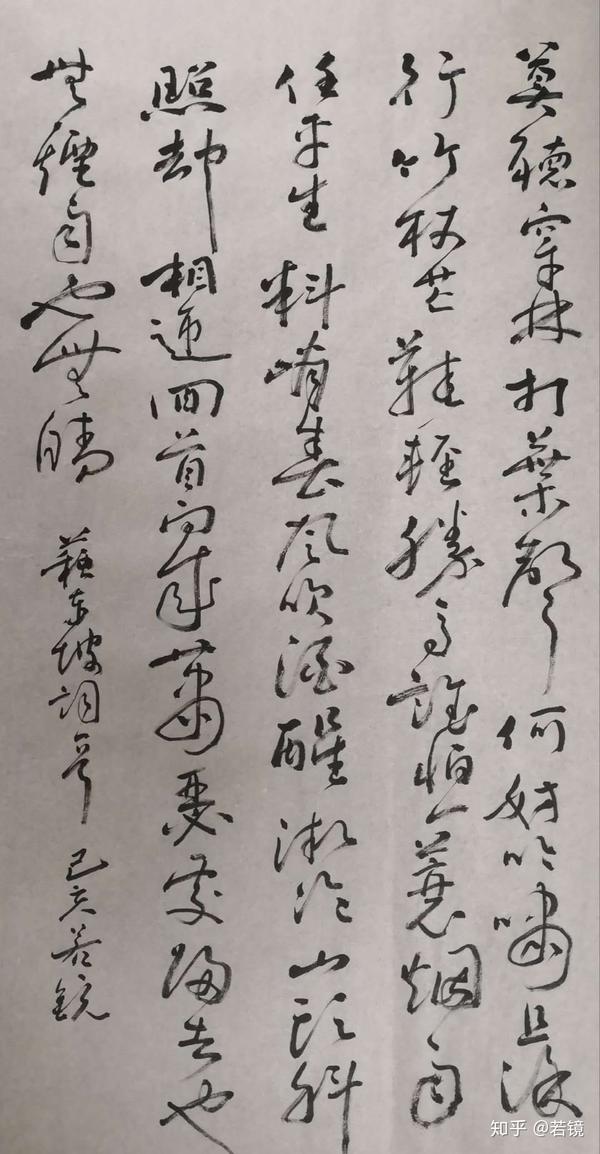 莫聽穿林打葉聲何妨吟嘯且徐
行竹杖芒鞋輕勝馬誰怕一蓑烟雨
任平生料峭春風吹酒醒微冷山頭斜
照却相迎回首向來蕭瑟處歸去也
無煙雨也無晴 蘇東坡詞 己亥若鏡
知乎 @若镜